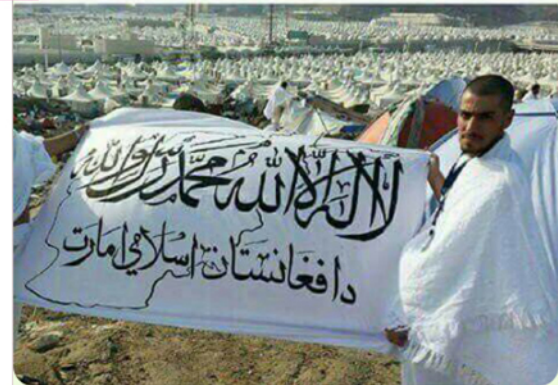 لا إله إلا الله محمد رسول الله
دافغانستان اسلامي امارت